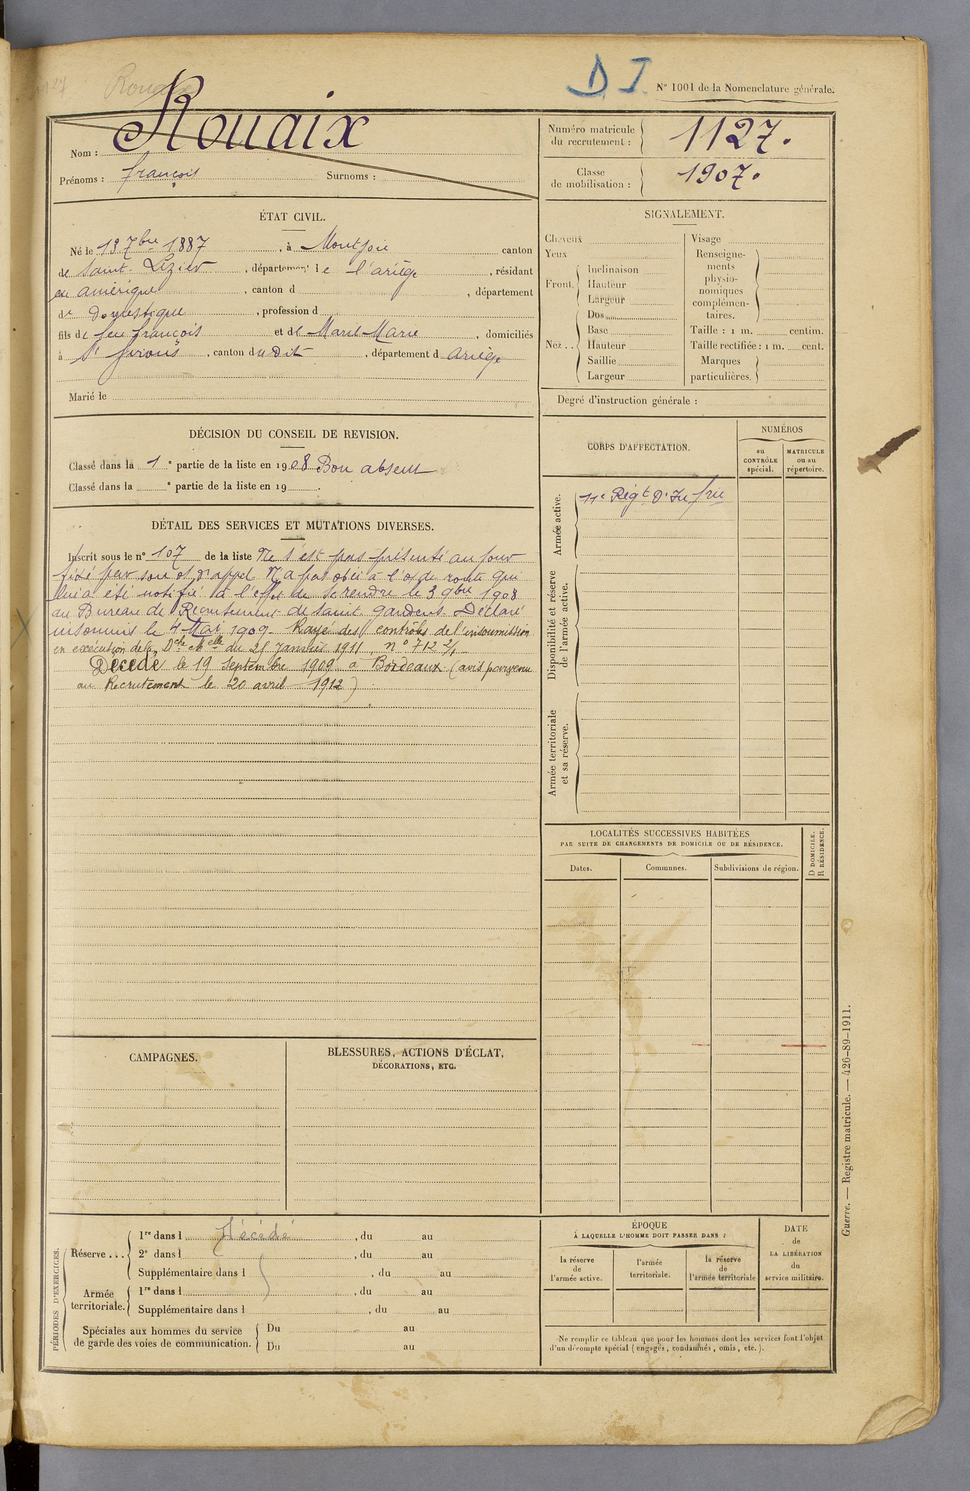 D I
N° 1001 de la Nomenclature générale.
Rouaix
Nom :
Prénoms : françois Surnoms :
Numéro matricule du recrutement : 1127.
Classe de mobilisation : 1907.
ÉTAT CIVIL.
Né le 13 7bre 1887, à Montjoie canton
de Saint-Lizier, département de l'ariège, résidant
en amérique, canton d , département
d domestique, profession d
fils de feu françois et de Marel Marie, domiciliés
à St Girons, canton dudit, département d Ariège
Marié le
SIGNALEMENT.
Cheveux
Yeux
Front. Inclinaison
Hauteur
Largeur
Nez.. Dos
Base
Hauteur
Saillie
Largeur
Visage
Renseignements physionomiques complémentaires.
Taille : 1 m. centim.
Taille rectifiée : 1 m. cent.
Marques particulières.
Degré d'instruction générale :
DÉCISION DU CONSEIL DE REVISION.
Classé dans la 1e partie de la liste en 1908 Bon absent
Classé dans la e partie de la liste en 19 .
DÉTAIL DES SERVICES ET MUTATIONS DIVERSES.
Inscrit sous le n° 107 de la liste Ne s'est pas présenté au jour
fixé par son od d'appel N'a pas obéi à l'o/ de route qui
lui a été notifié à l'effet de se rendre le 3 9bre 1908
au Bureau de Recrutement de Saint Gaudens. Déclaré
insoumis le 4 Mai 1909. Rayé des contrôles de l'insoumission
en exécution de la Dcle Mlle du 21 janvier 1911, n° 712 2/1
Décédé le 19 Septembre 1909 à Bordeaux (avis parvenu
au Recrutement le 20 avril 1912)
CORPS D'AFFECTATION.
NUMÉROS
au CONTRÔLE spécial.
MATRICULE ou au répertoire.
Armée active.
11e Régt D'Infrie
Disponibilité et réserve de l'armée active.
Armée territoriale et sa réserve.
LOCALITÉS SUCCESSIVES HABITÉES
PAR SUITE DE CHANGEMENTS DE DOMICILE OU DE RÉSIDENCE.
Dates.
Communes.
Subdivisions de région.
D DOMICILE.
R RÉSIDENCE.
CAMPAGNES.
BLESSURES, ACTIONS D'ÉCLAT,
DÉCORATIONS, ETC.
PÉRIODES D'EXERCICES.
Réserve ... 1re dans l Décédé, du au
2e dans l , du au
Supplémentaire dans l , du au
Armée territoriale. 1re dans l , du au
Supplémentaire dans l , du au
Spéciales aux hommes du service Du au
de garde des voies de communication. Du au
ÉPOQUE
À LAQUELLE L'HOMME DOIT PASSER DANS :
la réserve de l'armée active.
l'armée territoriale.
la réserve de l'armée territoriale
DATE
de
LA LIBÉRATION
du
service militaire.
Ne remplir ce tableau que pour les hommes dont les services font l'objet
d'un décompte spécial (engagés, condamnés, omis, etc.).
Guerre. — Registre matricule. — 426-89-1911.